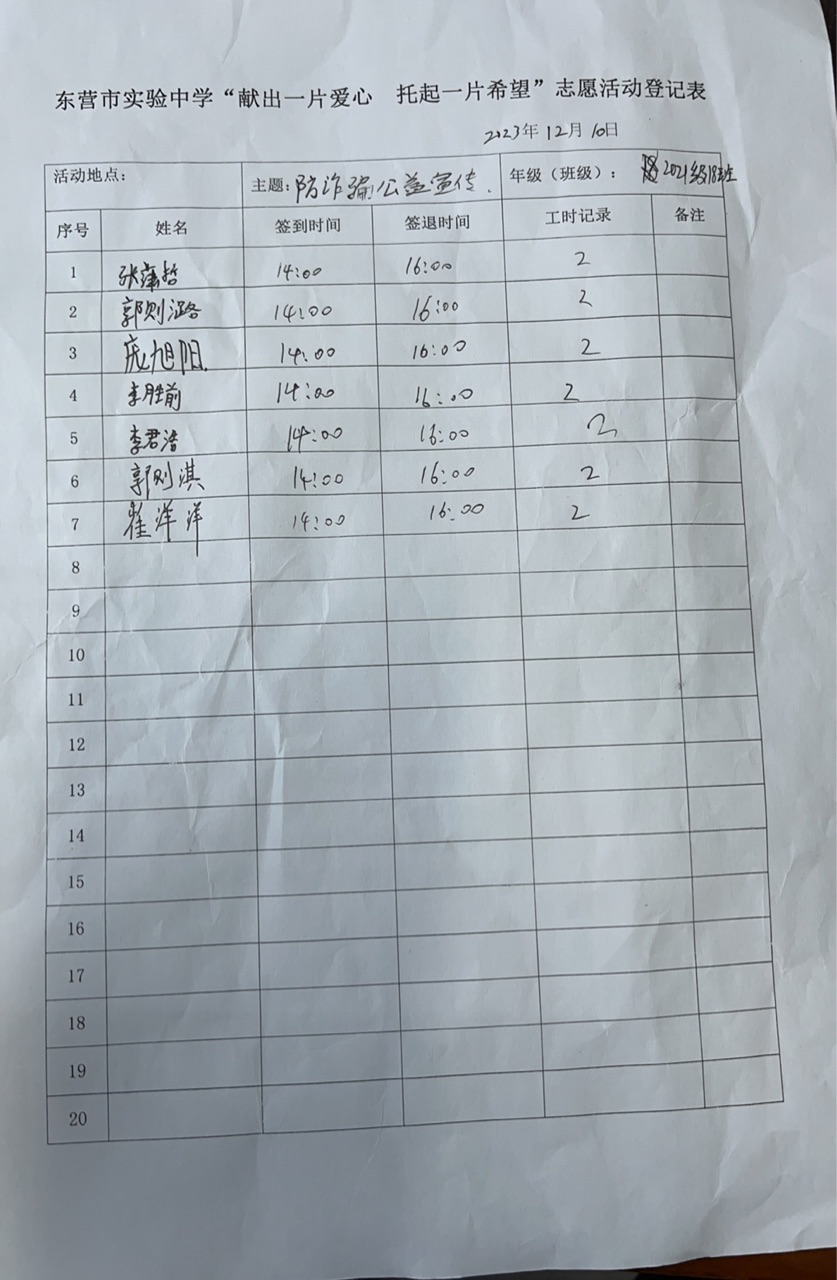 东营市实验中学“献出一片爱心 托起一片希望”志愿活动登记表
2023年12月10日
活动地点: 主题:防诈骗公益宣传. 年级（班级）: 2021级18班
序号 姓名 签到时间 签退时间 工时记录 备注
1 张 哲 14:00 16:00 2
2 郭则潞 14:00 16:00 2
3 庞旭阳. 14:00 16:00 2
4 李胜前 14:00 16:00 2
5 李君浩 14:00 16:00 2
6 郭则淇 14:00 16:00 2
7 翟洋洋 14:00 16:00 2
8
9
10
11
12
13
14
15
16
17
18
19
20